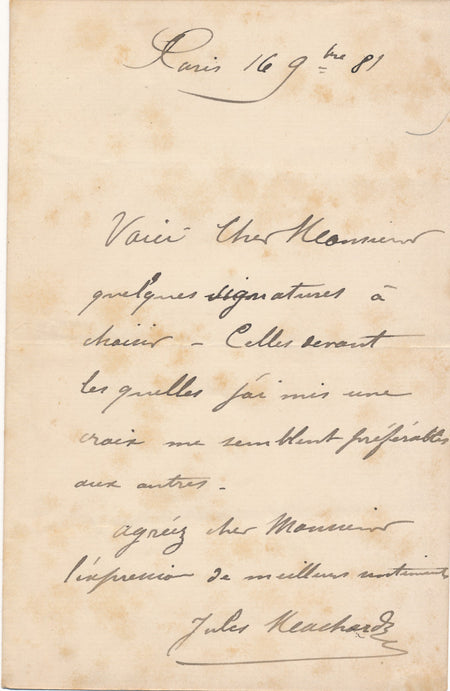 Paris 16 9bre 81
Voici Cher Monsieur
quelques signatures à
choisir - Celles devant
les quelles j'ai mis une
croix me semblent préférables
aux autres.
agréez cher Monsieur
l'expression de meilleurs sentiments
Jules Machard